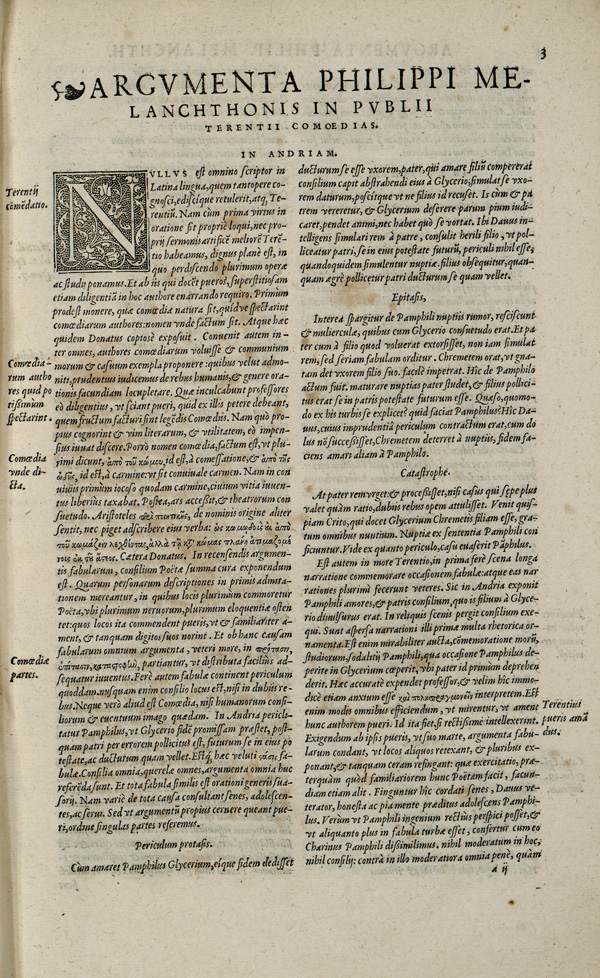 3
ARGVMENTA PHILIPPI ME-
LANCHTHONIS IN PVBLII
TERENTII COMOEDIAS.
IN ANDRIAM.
NVLLVS est omnino scriptor in
Latina lingua, quem tantopere co-
gnosci, ediscique retulerit, atq, Te-
rentiũ. Nam cùm prima virtus in
oratione sit propriè loqui, nec pro-
prij sermonis artificẽ meliorẽ Terẽ-
tio habeamus, dignus planè est, in
quo perdiscendo plurimum operæ
ac studij ponamus. Et ab iis qui docẽt pueros, superstitiosam
etiam diligentiã in hoc authore enarrando requiro. Primùm
prodest monere, quæ comœdiæ natura sit, quidve spectarint
comœdiarum authores: nomen vnde factum sit. Atque hæc
quidem Donatus copiosè exposuit. Conuenit autem in-
ter omnes, authores comœdiarum voluisse & communium
morum & casuum exempla proponere: quibus velut admo-
niti, prudentius iudicemus de rebus humanis, & genere ora-
tionis facundiam locupletare. Quæ inculcabunt professores
eò diligentius, vt sciant pueri, quid ex illis petere debeant,
quem fructum facturi sint legẽdis Comœdiis. Nam quò pro-
pius cognorint & vim literarum, & vtilitatem, eò impen-
sius iuuat discere. Porrò nomen comœdia, factum est, vt plu-
rimi dicunt, ἀπὸ τοῦ κώμου, id est, à comessatione, & ἀπὸ τῆς
ᾠδῆς, id est, à carmine: vt sit conuiuale carmen. Nam in con
uiuiis primùm iocoso quodam carmine, ciuium vitia iuuen-
tus liberius taxabat. Postea, ars accessit, & theatrorum con
suetudo. Aristoteles de nominis origine aliter
sentit, nec piget adscribere eius verba: ὡς κωμῳδοὺς οὐκ ἀπὸ
τοῦ κωμάζειν λεχθέντας, ἀλλὰ τῇ κατὰ κώμας πλάνῃ ἀτιμαζομέ
νοις ἐκ τοῦ ἄστεος. Cætera Donatus. In recensendis argumen-
tis fabularum, consilium Poëtæ summa cura exponendum
est. Quarum personarum descriptiones in primis admira-
tionem mereantur, in quibus locis plurimùm commoretur
Poëta, vbi plurimum neruorum, plurimum eloquentiæ osten
tet: quos locis ita commendent pueris, vt & familiariter a-
ment, & tanquam digitos suos norint. Et ob hanc causam
fabularum omnium argumenta, veteri more, in πρότασιν,
ἐπίτασιν, καταστροφὴν, partiantur, vt distributa facilius ad-
sequatur iuuentus. Ferè autem fabulæ continent periculum
quoddam. nusquam enim consilio locus est, nisi in dubiis re-
bus. Neque verò aliud est Comœdia, nisi humanorum consi-
liorum & euentuum imago quædam. In Andria pericli-
tatur Pamphilus, vt Glycerio fidẽ promissam præstet, post-
quam patri per errorem pollicitus est, futurum se in eius po
testate, ac ducturum quam vellet. Estq́, hæc veluti fa-
bulæ. Consilia omnia, querelæ omnes, argumenta omnia huc
referẽda sunt. Et tota fabula similis est orationi generis sua-
sorij. Nam variè de tota causa consultant senes, adolescen-
tes, ac seruus. Sed vt argumentũ propius cernere queant pue-
ri, ordine singulas partes referemus.
Periculum protasis.
Cùm amaret Pamphilus Glycerium, eíque fidem dedisset
ducturum se esse vxorem, pater, qui amare filiũ compererat
consilium capit abstrahendi eius à Glycerio, simulat se vxo-
rem daturum, poscitque vt ne filius id recuset. Is cùm & pa
trem vereretur, & Glycerium deserere parum pium iudi-
caret, pendet animi, nec habet quò se vortat. Ibi Dauus in-
telligens simulari rem à patre, consulit herili filio, vt pol-
liceatur patri, se in eius potestate futurũ, periculi nihil esse,
quandoquidem simulentur nuptiæ. filius obsequitur, quan-
quam ægrè pollicetur patri ducturum se quam vellet.
Epitasis,
Interea spargitur de Pamphili nuptiis rumor, resciscunt
& mulierculæ, quibus cum Glycerio consuetudo erat. Et pa
ter cùm à filio quod voluerat extorsisset, non iam simulat
rem, sed seriam fabulam orditur. Chremetem orat, vt gna-
tam det vxorem filio suo. facilè impetrat. Hîc de Pamphilo
actum fuit. maturare nuptias pater studet, & filius pollici-
tus erat se in patris potestate futurum esse. Quæso, quomo-
do ex his turbis se explicet? quid faciat Pamphilus? Hîc Da-
uus, cuius imprudentia periculum contractum erat, cum do
lus nõ successisset, Chremetem deterret à nuptiis, fidem fa-
ciens amari aliam à Pamphilo.
Catastrophe.
At pater rem vrget: & processisset, nisi casus qui sæpe plus
valet quàm ratio, dubiis rebus opem attulisset. Venit quis-
piam Crito, qui docet Glycerium Chremetis filiam esse, gra-
tum omnibus nuntium. Nuptiæ ex sententia Pamphili con
ficiuntur. Vide ex quanto periculo, casu euaserit Pãphilus.
Est autem in more Terentio, in prima ferè scena longa
narratione commemorare occasionem fabulæ: atque eas nar
rationes plurimi fecerunt veteres. Sic in Andria exponit
Pamphili amores, & patris consilium, quo is filium à Glyce-
rio diuulsurus erat. In reliquis scenis pergit consilium exe-
qui. Sunt aspersa narrationi illi primæ multa rhetorica or-
namenta. Est enim mirabiliter aucta, cõmemoratione morũ,
studiorum, sodaliũ Pamphili, qua occasione Pamphilus de-
perire in Glycerium cœperit, vbi pater id primùm deprehen
derit. Hæc accuratè expendet professor, & velim hîc immo-
dicè etiam anxium esse interpretem. Est
enim modis omnibus efficiendum, vt mirentur, vt ament
hunc authorem pueri. Id ita fiet, si rectissimè intellexerint.
Exigendum ab ipsis pueris, vt suo marte, argumenta fabu-
larum condant, vt locos aliquos retexant, & pluribus ex-
ponant, & tanquam ceram refingant: quæ exercitatio, præ-
terquàm quòd familiariorem hunc Poëtam facit, facun-
diam etiam alit. Finguntur hîc cordati senes, Dauus ve-
terator, honesta ac pia mente præditus adolescens Pamphi-
lus. Verùm vt Pamphili ingenium rectius perspici posset, &
vt aliquanto plus in fabula turbæ esset, confertur cum eo
Charinus Pamphili dissimilimus. nihil moderatum in hoc,
nihil consilij: contrà in illo moderatiora omnia penè, quàm
a ij
Terentij
comẽdatio.
Comœdia-
rum autho
res quid po
tissimùm
spectarint.
Comœdia
vnde di-
cta.
Comœdiæ
partes.
Terentius
pueris amã
dus.